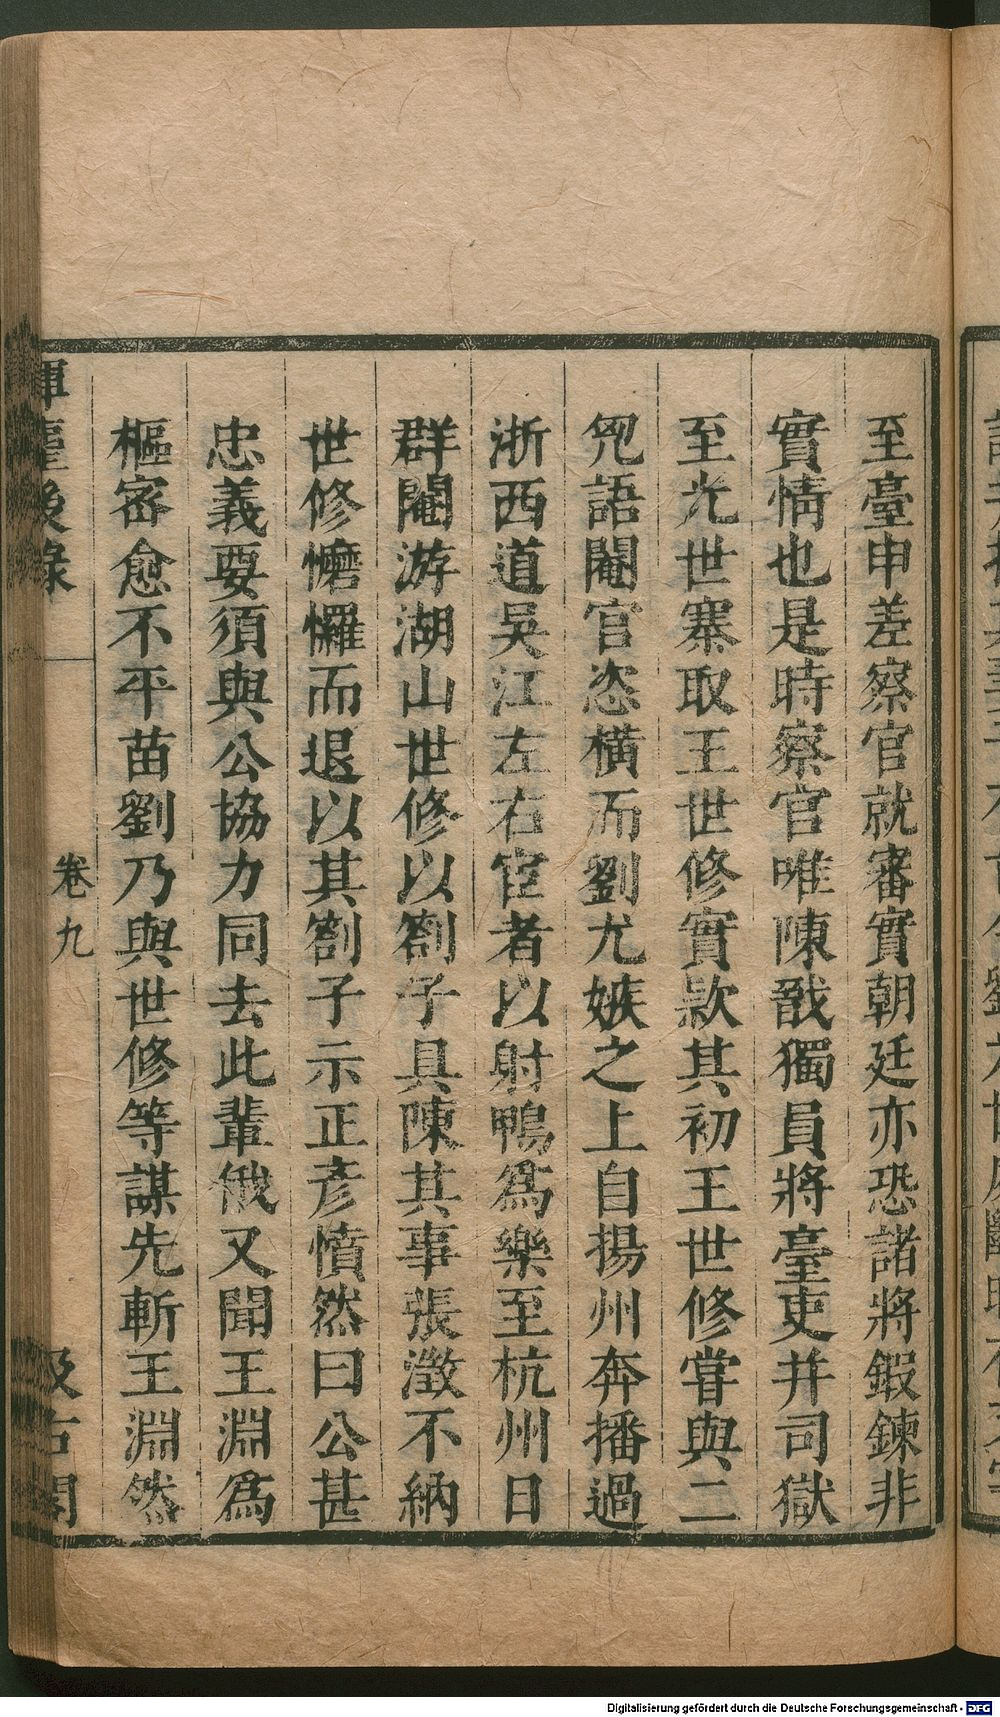 至臺申差察官就審實朝廷亦恐諸將鍜鍊非
實情也是時察官唯陳戩獨員將臺吏并司獄
至光世寨取王世修實款其初王世修嘗與二
兇語閹官恣橫而劉尤嫉之上自揚州奔播過
浙西道吳江左右宦者以射鴨爲樂至杭州日
群閹游湖山世修以劄子具陳其事張澂不納
世修懡㦬而退以其劄子示正彥憤然曰公甚
忠義要須與公協力同去此輩俄又聞王淵爲
樞密愈不平苗劉乃與世修等謀先斬王淵然
揮麈後錄
卷九
汲古閣
Digitalisierung gefördert durch die Deutsche Forschungsgemeinschaft - DFG